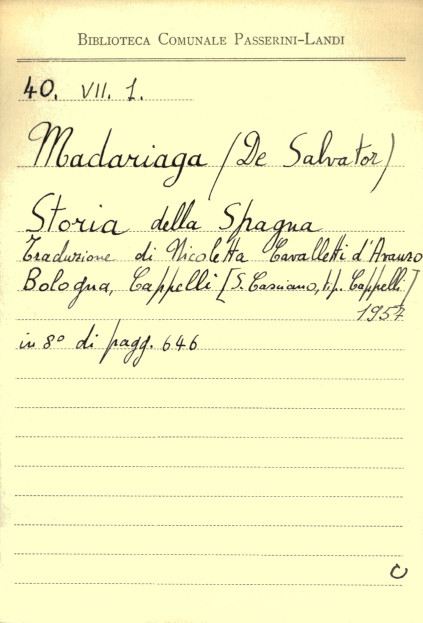 BIBLIOTECA COMUNALE PASSERINI-LANDI
40. VII. 1.
Madariaga (De Salvator)
Storia della Spagna
Traduzione di Nicoletta Cavalletti d'Avanzo
Bologna, Cappelli [S. Casciano, tip. Cappelli]
1957
in 8° di pagg. 646